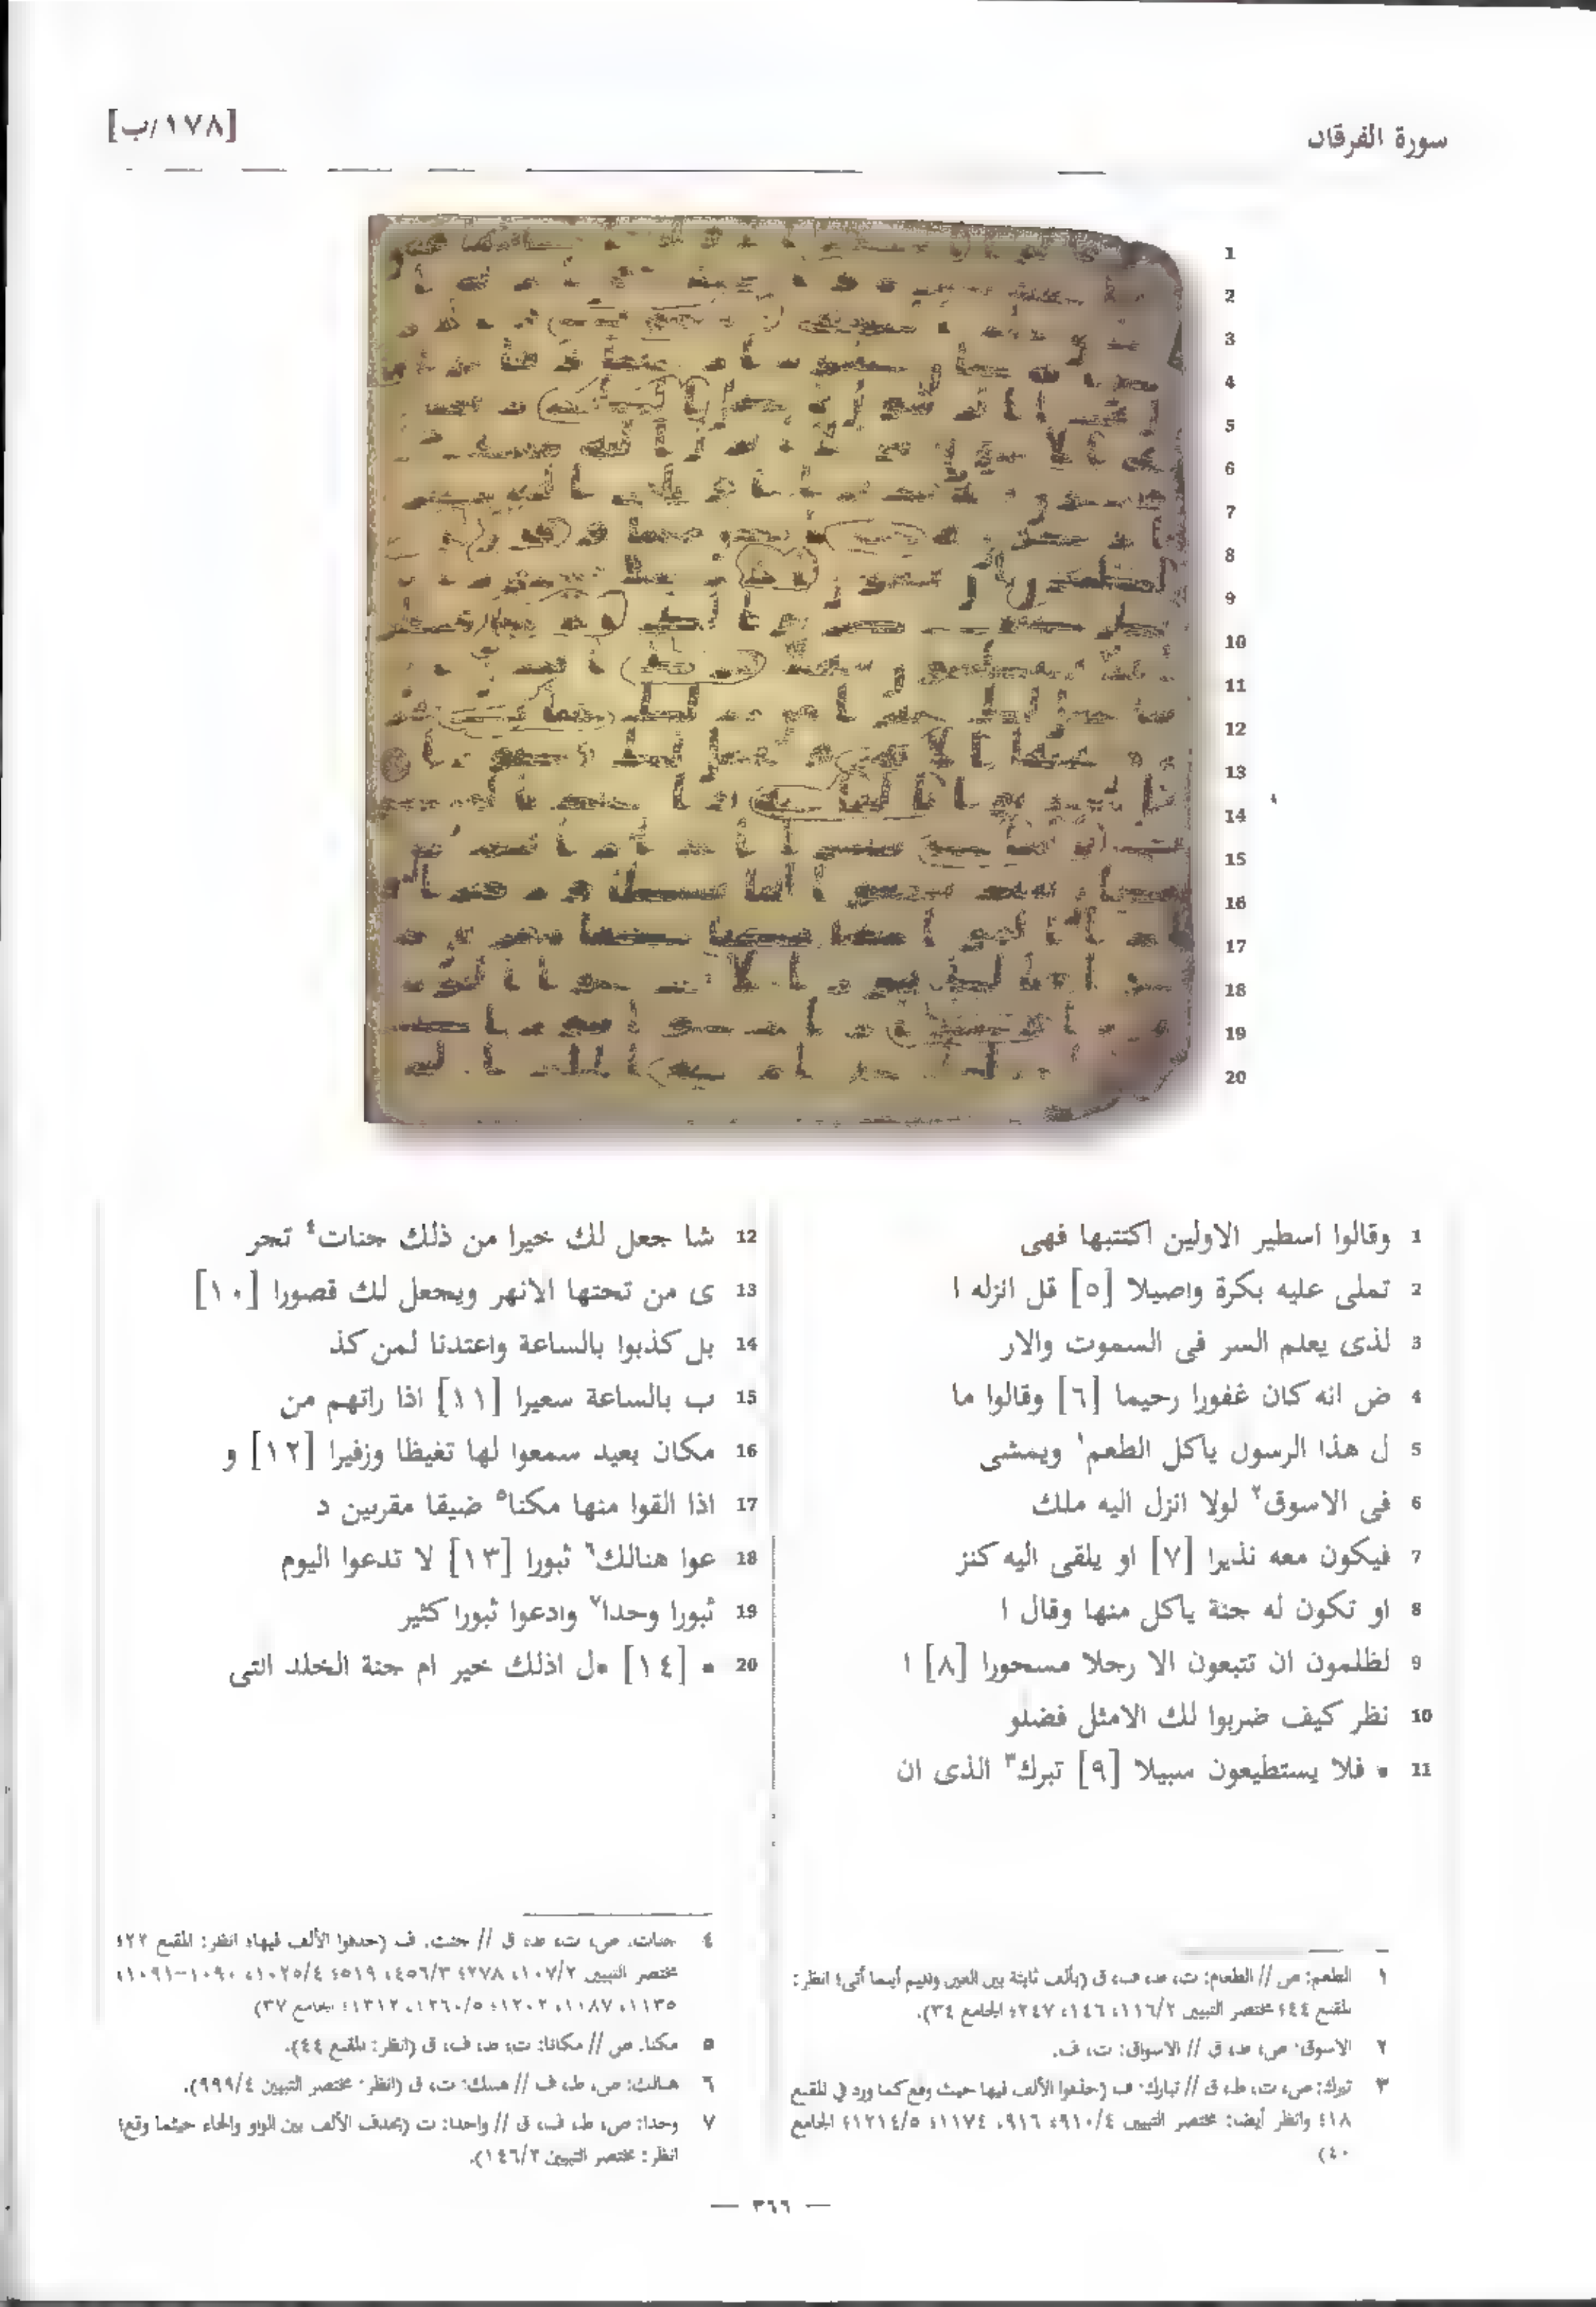 سورة الفرقان
[١٧٨/ب]
1
2
3
4
5
6
7
8
9
10
11
12
13
14
15
16
17
18
19
20
1 وقالوا اسطير الاولين اكتتبها فهى
2 تملى عليه بكرة واصيلا [٥] قل انزله ا
3 لذى يعلم السر فى السموت والار
4 ض انه كان غفورا رحيما [٦] وقالوا ما
5 ل هذا الرسول ياكل الطعم١ ويمشى
6 فى الاسوق٢ لولا انزل اليه ملك
7 فيكون معه نذيرا [٧] او يلقى اليه كنز
8 او تكون له جنة ياكل منها وقال ا
9 لظلمون ان تتبعون الا رجلا مسحورا [٨] ا
10 نظر كيف ضربوا لك الامثل فضلو
11 • فلا يستطيعون سبيلا [٩] تبرك٣ الذى ان
12 شا جعل لك خيرا من ذلك جنات٤ تجر
13 ى من تحتها الانهر ويجعل لك قصورا [١٠]
14 بل كذبوا بالساعة واعتدنا لمن كذ
15 ب بالساعة سعيرا [١١] اذا راتهم من
16 مكان بعيد سمعوا لها تغيظا وزفيرا [١٢] و
17 اذا القوا منها مكنا٥ ضيقا مقرنين د
18 عوا هنالك٦ ثبورا [١٣] لا تدعوا اليوم
19 ثبورا وحدا٧ وادعوا ثبورا كثير
20 • [١٤] •ل اذلك خير ام جنة الخلد التى
١ الطعم: ص // الطعام: ت، ط، ف، ق (بألف ثابتة بين العين والميم أينما أتى؛ انظر:
المقنع ٤٤؛ مختصر التبيين ١١٦/٢، ١٤٦، ٢٤٧؛ الجامع ٣٤).
٢ الاسوق: ص، ط، ق // الاسواق: ت، ف.
٣ تبرك: ص، ت، ط، ق // تبارك: ف (حذفوا الألف فيها حيث وقع كما ورد في المقنع
١٨؛ وانظر أيضا: مختصر التبيين ٩١٠/٤، ٩١٦، ١١٧٤؛ ١٢١٤/٥؛ الجامع
٤٠)
٤ جنات: ص، ت، ط، ق // جنت: ف (حذفوا الألف فيها؛ انظر: المقنع ٢٢؛
مختصر التبيين ١٠٧/٢، ٢٧٨؛ ٤٥٦/٣، ٥١٩؛ ١٠٢٥/٤، ١٠٩٠-١٠٩١،
١١٣٥، ١١٨٧، ١٢٠٢؛ ١٢٦٠/٥، ١٣١٢؛ الجامع ٣٧)
٥ مكنا: ص // مكانا: ت، ط، ف، ق (انظر: المقنع ٤٤).
٦ هنالك: ص، ط، ف // هنلك: ت، ق (انظر: مختصر التبيين ٩٩٩/٤).
٧ وحدا: ص، ط، ف، ق // واحدا: ت (بحذف الألف بين الواو والحاء حيثما وقع؛
انظر: مختصر التبيين ١٤٦/٢).
— ٣٦٦ —